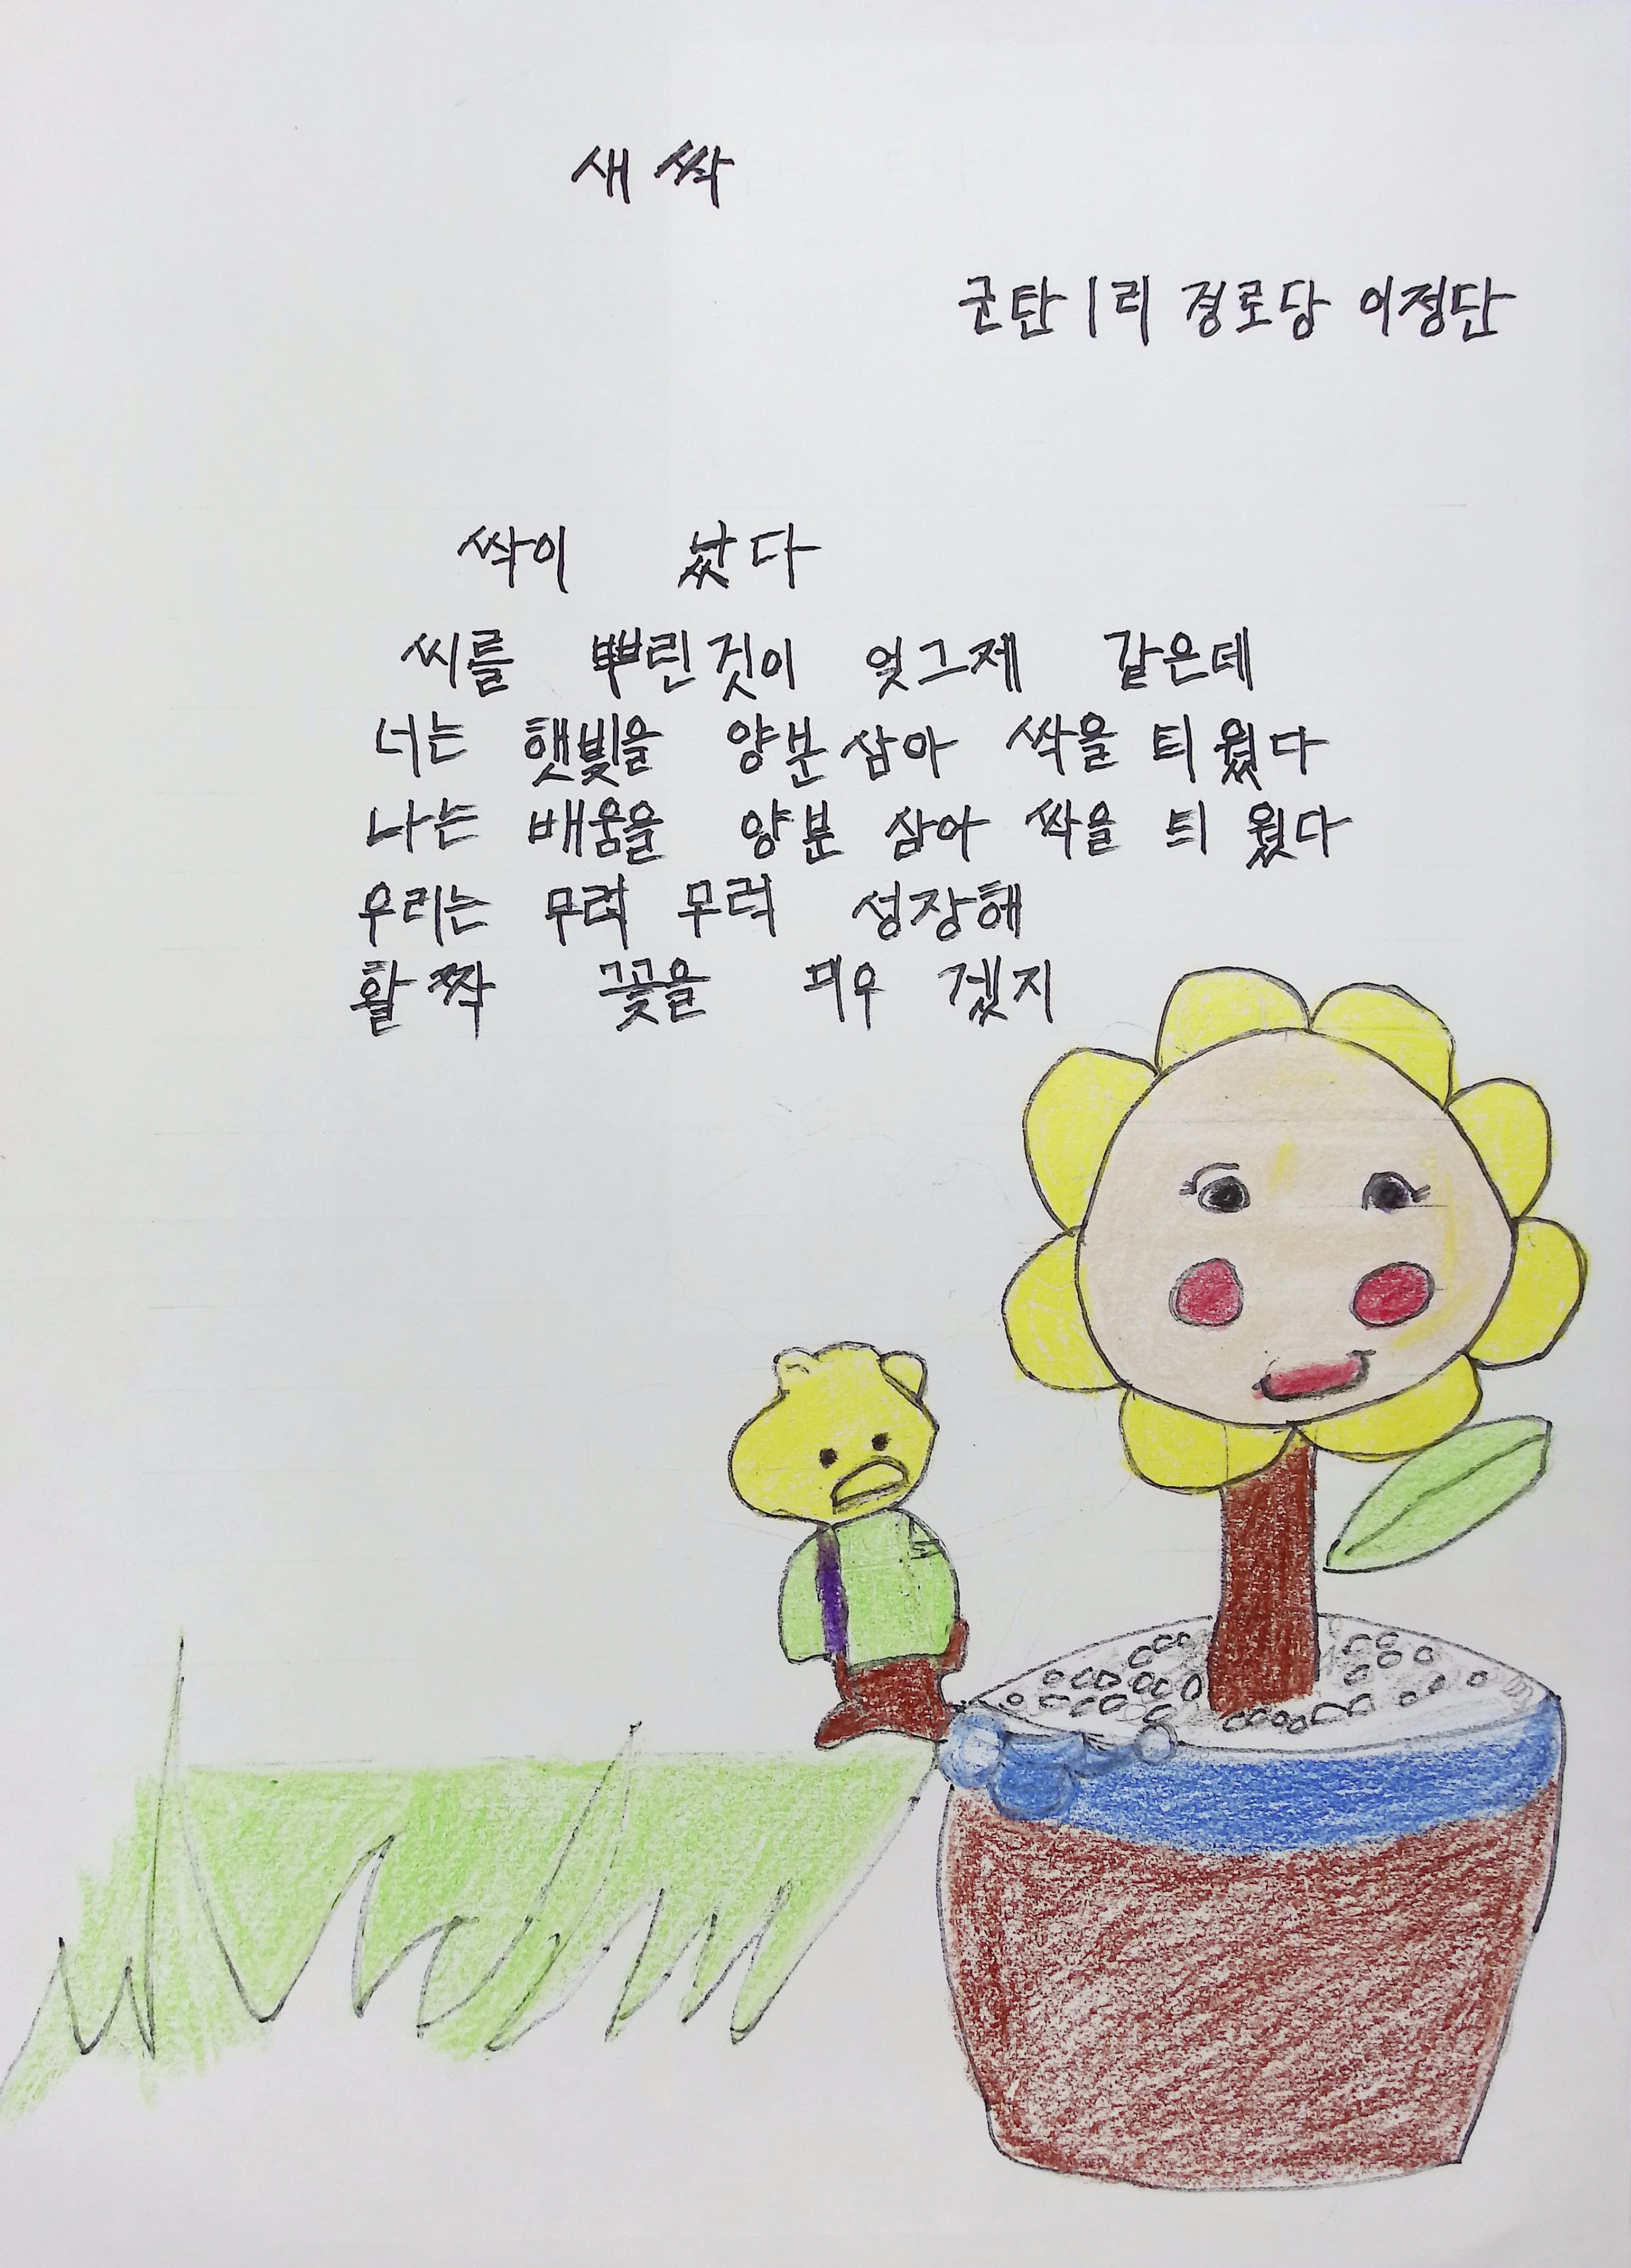 새싹
군탄1리 경로당 이정단
싹이 났다
씨를 뿌린것이 엊그제 같은데
너는 햇빛을 양분삼아 싹을 틔웠다
나는 배움을 양분 삼아 싹을 틔웠다
우리는 무럭 무럭 성장해
활짝 꽃을 피우겠지